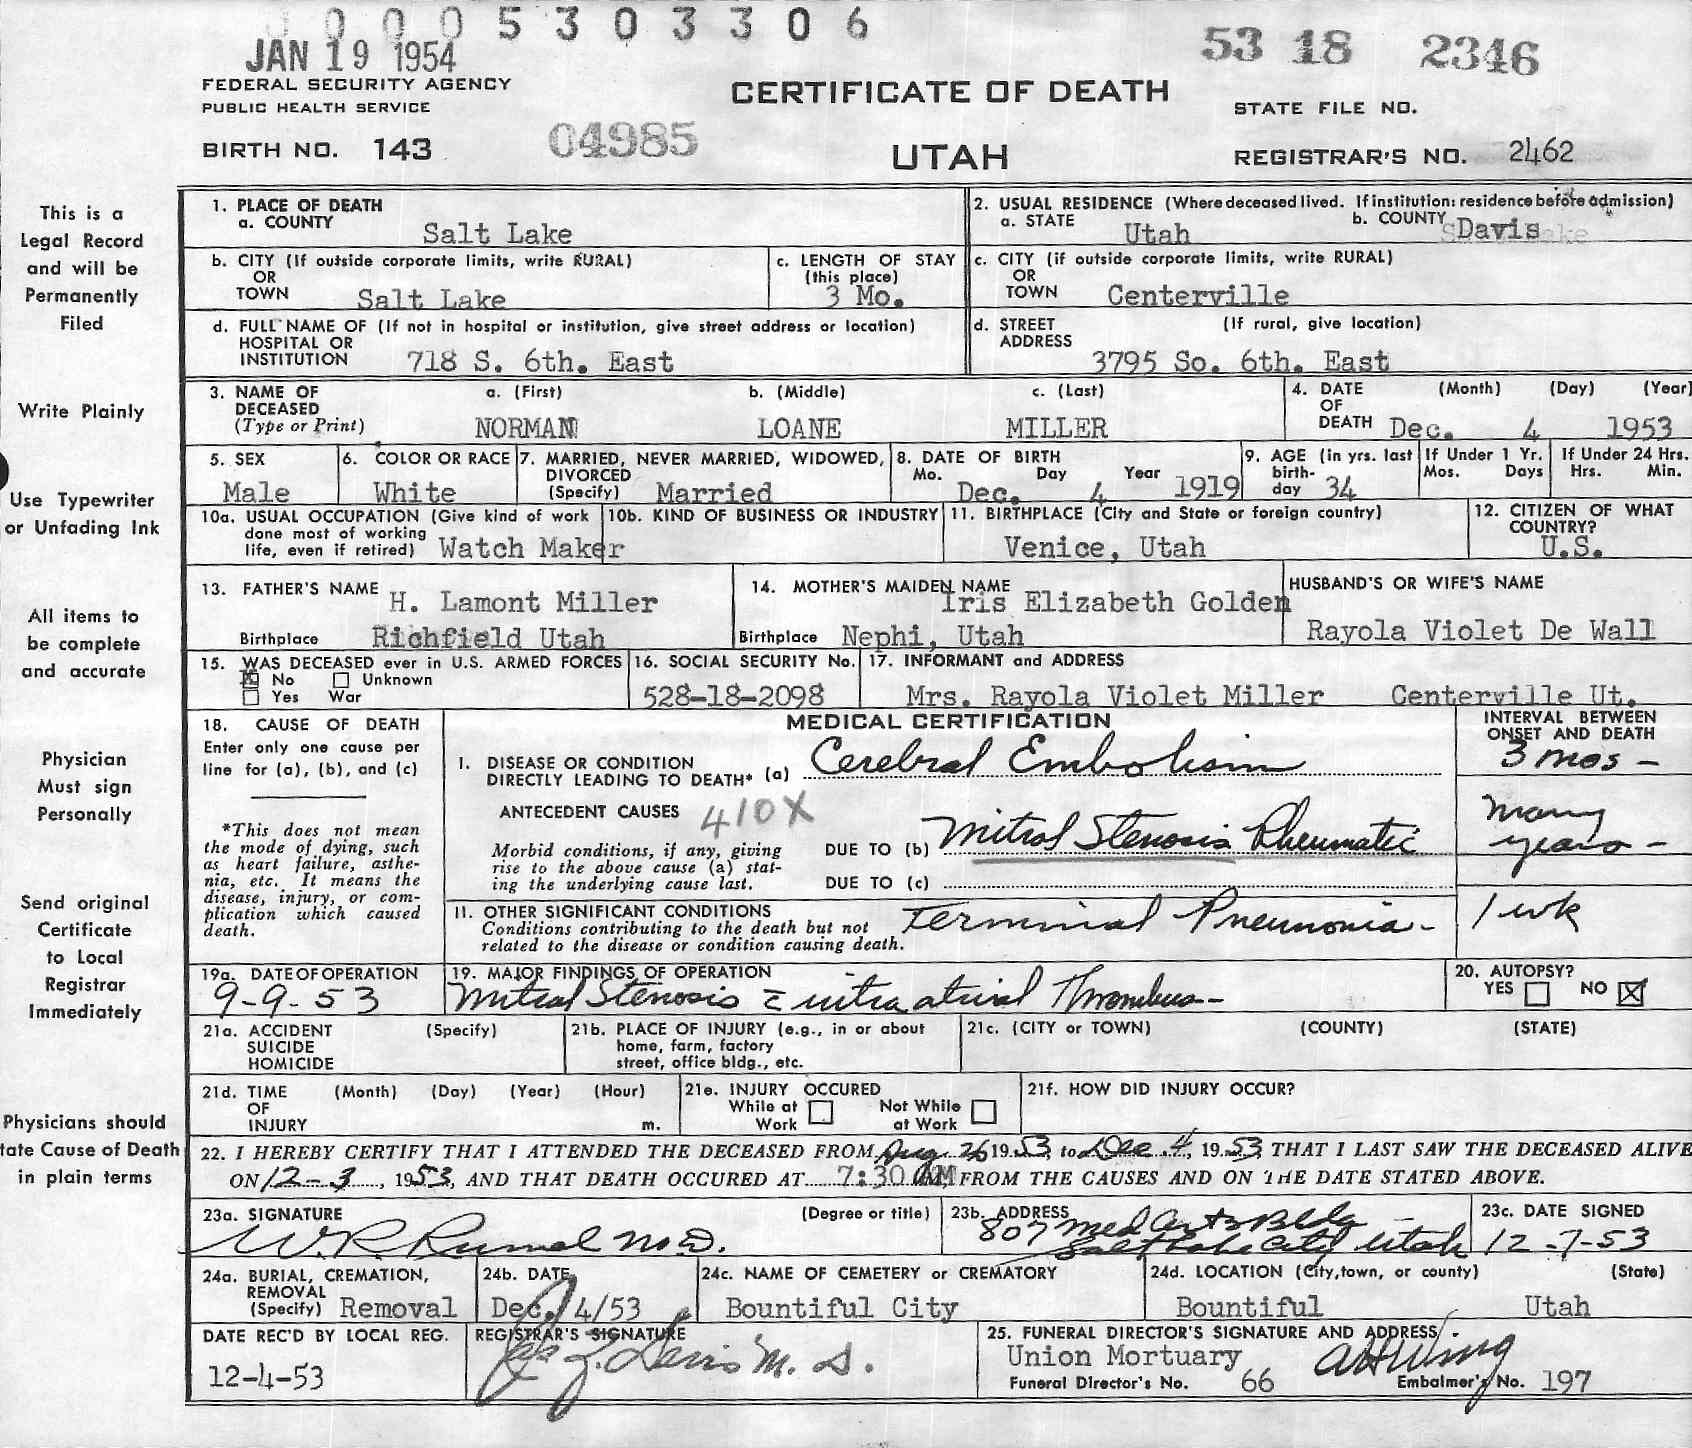 0 0 0 5 3 0 3 3 0 6
JAN 19 1954
53 18 2346
FEDERAL SECURITY AGENCY
PUBLIC HEALTH SERVICE
CERTIFICATE OF DEATH
STATE FILE NO.
BIRTH NO. 143
04985
UTAH
REGISTRAR'S NO. 2462
This is a
Legal Record
and will be
Permanently
Filed
1. PLACE OF DEATH
a. COUNTY
Salt Lake
2. USUAL RESIDENCE (Where deceased lived. If institution: residence before admission)
a. STATE Utah
b. COUNTY Davis
b. CITY (If outside corporate limits, write RURAL)
OR
TOWN Salt Lake
c. LENGTH OF STAY
(this place)
3 Mo.
c. CITY (if outside corporate limits, write RURAL)
OR
TOWN Centerville
d. FULL NAME OF (If not in hospital or institution, give street address or location)
HOSPITAL OR
INSTITUTION 718 S. 6th. East
d. STREET (If rural, give location)
ADDRESS
3795 So. 6th. East
Write Plainly
3. NAME OF a. (First) b. (Middle) c. (Last)
DECEASED
(Type or Print) NORMAN LOANE MILLER
4. DATE (Month) (Day) (Year)
OF
DEATH Dec. 4 1953
Use Typewriter
or Unfading Ink
5. SEX
Male
6. COLOR OR RACE
White
7. MARRIED, NEVER MARRIED, WIDOWED,
DIVORCED
(Specify) Married
8. DATE OF BIRTH
Mo. Day Year
Dec. 4 1919
9. AGE (in yrs. last
birth-
day 34
If Under 1 Yr.
Mos. Days
If Under 24 Hrs.
Hrs. Min.
10a. USUAL OCCUPATION (Give kind of work
done most of working
life, even if retired) Watch Maker
10b. KIND OF BUSINESS OR INDUSTRY
11. BIRTHPLACE (City and State or foreign country)
Venice, Utah
12. CITIZEN OF WHAT
COUNTRY?
U.S.
All items to
be complete
and accurate
13. FATHER'S NAME H. Lamont Miller
Birthplace Richfield Utah
14. MOTHER'S MAIDEN NAME
Iris Elizabeth Golden
Birthplace Nephi, Utah
HUSBAND'S OR WIFE'S NAME
Rayola Violet De Wall
15. WAS DECEASED ever in U.S. ARMED FORCES
No Unknown
Yes War
16. SOCIAL SECURITY No.
528-18-2098
17. INFORMANT and ADDRESS
Mrs. Rayola Violet Miller Centerville Ut.
Physician
Must sign
Personally
18. CAUSE OF DEATH
Enter only one cause per
line for (a), (b), and (c)
*This does not mean
the mode of dying, such
as heart failure, asthe-
nia, etc. It means the
disease, injury, or com-
plication which caused
death.
MEDICAL CERTIFICATION
INTERVAL BETWEEN
ONSET AND DEATH
I. DISEASE OR CONDITION
DIRECTLY LEADING TO DEATH* (a) Cerebral Embolism
3 mos -
ANTECEDENT CAUSES 410X
Morbid conditions, if any, giving
rise to the above cause (a) stat-
ing the underlying cause last.
DUE TO (b) Mitral Stenosis Rheumatic
many
years -
DUE TO (c)
11. OTHER SIGNIFICANT CONDITIONS
Conditions contributing to the death but not
related to the disease or condition causing death.
Terminal Pneumonia -
1 wk
Send original
Certificate
to Local
Registrar
Immediately
19a. DATE OF OPERATION
9-9-53
19. MAJOR FINDINGS OF OPERATION
Mitral Stenosis c̄ intra atrial Thrombus -
20. AUTOPSY?
YES NO
21a. ACCIDENT (Specify)
SUICIDE
HOMICIDE
21b. PLACE OF INJURY (e.g., in or about
home, farm, factory
street, office bldg., etc.
21c. (CITY or TOWN) (COUNTY) (STATE)
21d. TIME (Month) (Day) (Year) (Hour)
OF
INJURY m.
21e. INJURY OCCURED
While at Not While
Work at Work
21f. HOW DID INJURY OCCUR?
Physicians should
tate Cause of Death
in plain terms
22. I HEREBY CERTIFY THAT I ATTENDED THE DECEASED FROM Aug 26 1953, to Dec. 4, 1953 THAT I LAST SAW THE DECEASED ALIVE
ON 12-3, 1953, AND THAT DEATH OCCURED AT 7:30 AM, FROM THE CAUSES AND ON THE DATE STATED ABOVE.
23a. SIGNATURE (Degree or title)
W.R. Rumel M.D.
23b. ADDRESS
807 Med Arts Bldg
Salt Lake City Utah
23c. DATE SIGNED
12-7-53
24a. BURIAL, CREMATION,
REMOVAL
(Specify) Removal
24b. DATE
Dec. 4/53
24c. NAME OF CEMETERY or CREMATORY
Bountiful City
24d. LOCATION (City, town, or county) (State)
Bountiful Utah
DATE REC'D BY LOCAL REG.
12-4-53
REGISTRAR'S SIGNATURE
Davis M. D.
25. FUNERAL DIRECTOR'S SIGNATURE AND ADDRESS
Union Mortuary
Funeral Director's No. 66
Embalmer's No. 197